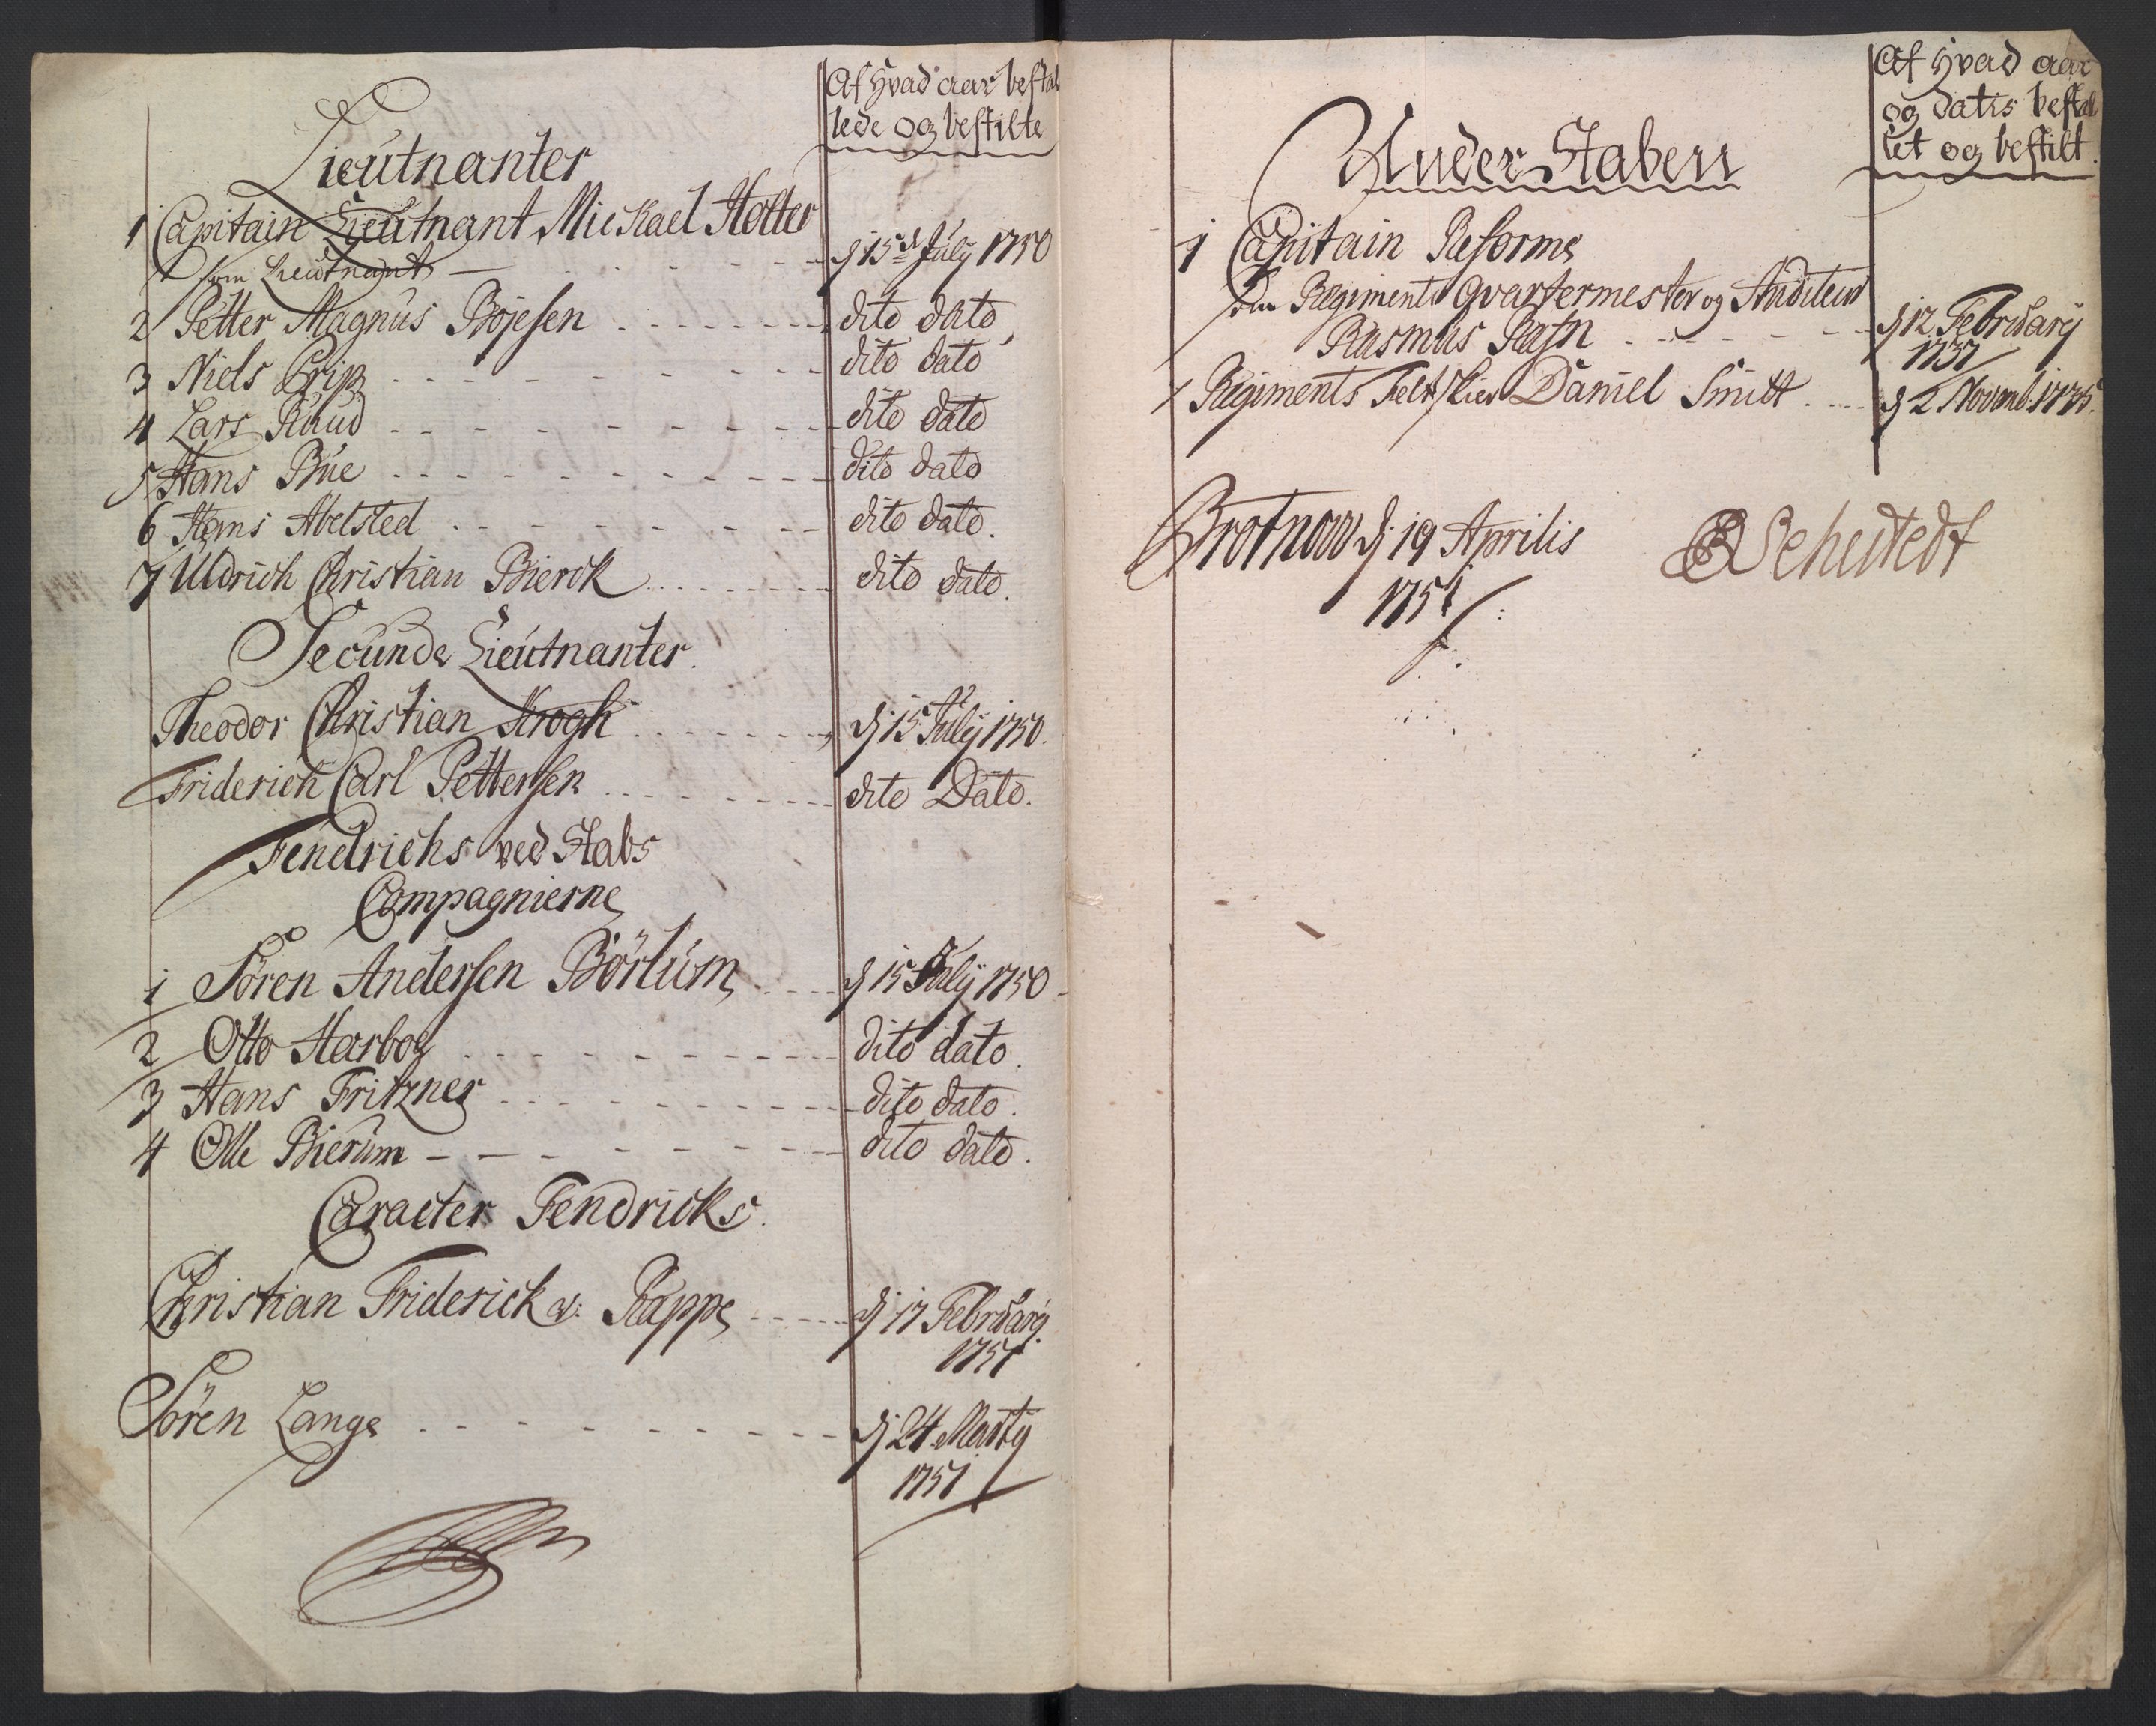 Af hvad aar bestal
lede og bestilte
Lieutnanter
1 Capitain Lieutnant Mickael Holter
som Lieutnant - dj 15de July 1750
2 Petter Magnus Bojesen dito dato
3 Niels Grip dito dato
4 Lars Ruud dito dato
5 Hans Bue dito dato
6 Hans Abelsted dito dato.
7 Uldrich Christian Bierck dito dato.
Secunde Lieutnanter.
Theodor Christian Krogh dj 15 July 1750.
Friderich Carl Pettersen dito Dato.
Fendrichs ved Stabs
Compagnierne
1 Sören Andersen Börlum dj 15 July 1750
2 Otto Harboe dito dato.
3 Hans Fritzner dito dato.
4 Olle Bierum dito dato.
Caracter Fendricks.
Christian Friderick v: Rappe dj 17 February
1751
Sören Lange dj 24 Marty
1751
Af hvad aar
og datis bestal
let og bestilt.
Under Staben
1 Capitain Reforme
som Regiments Qvartermester og Auditeur
Rasmus Rafn dj 12 February
1737
1 Regiments Feltskier Daniel Smitt dj 2 Novemb. 1775.
Brotnow dj 19 Aprilis
1751
Schestedt